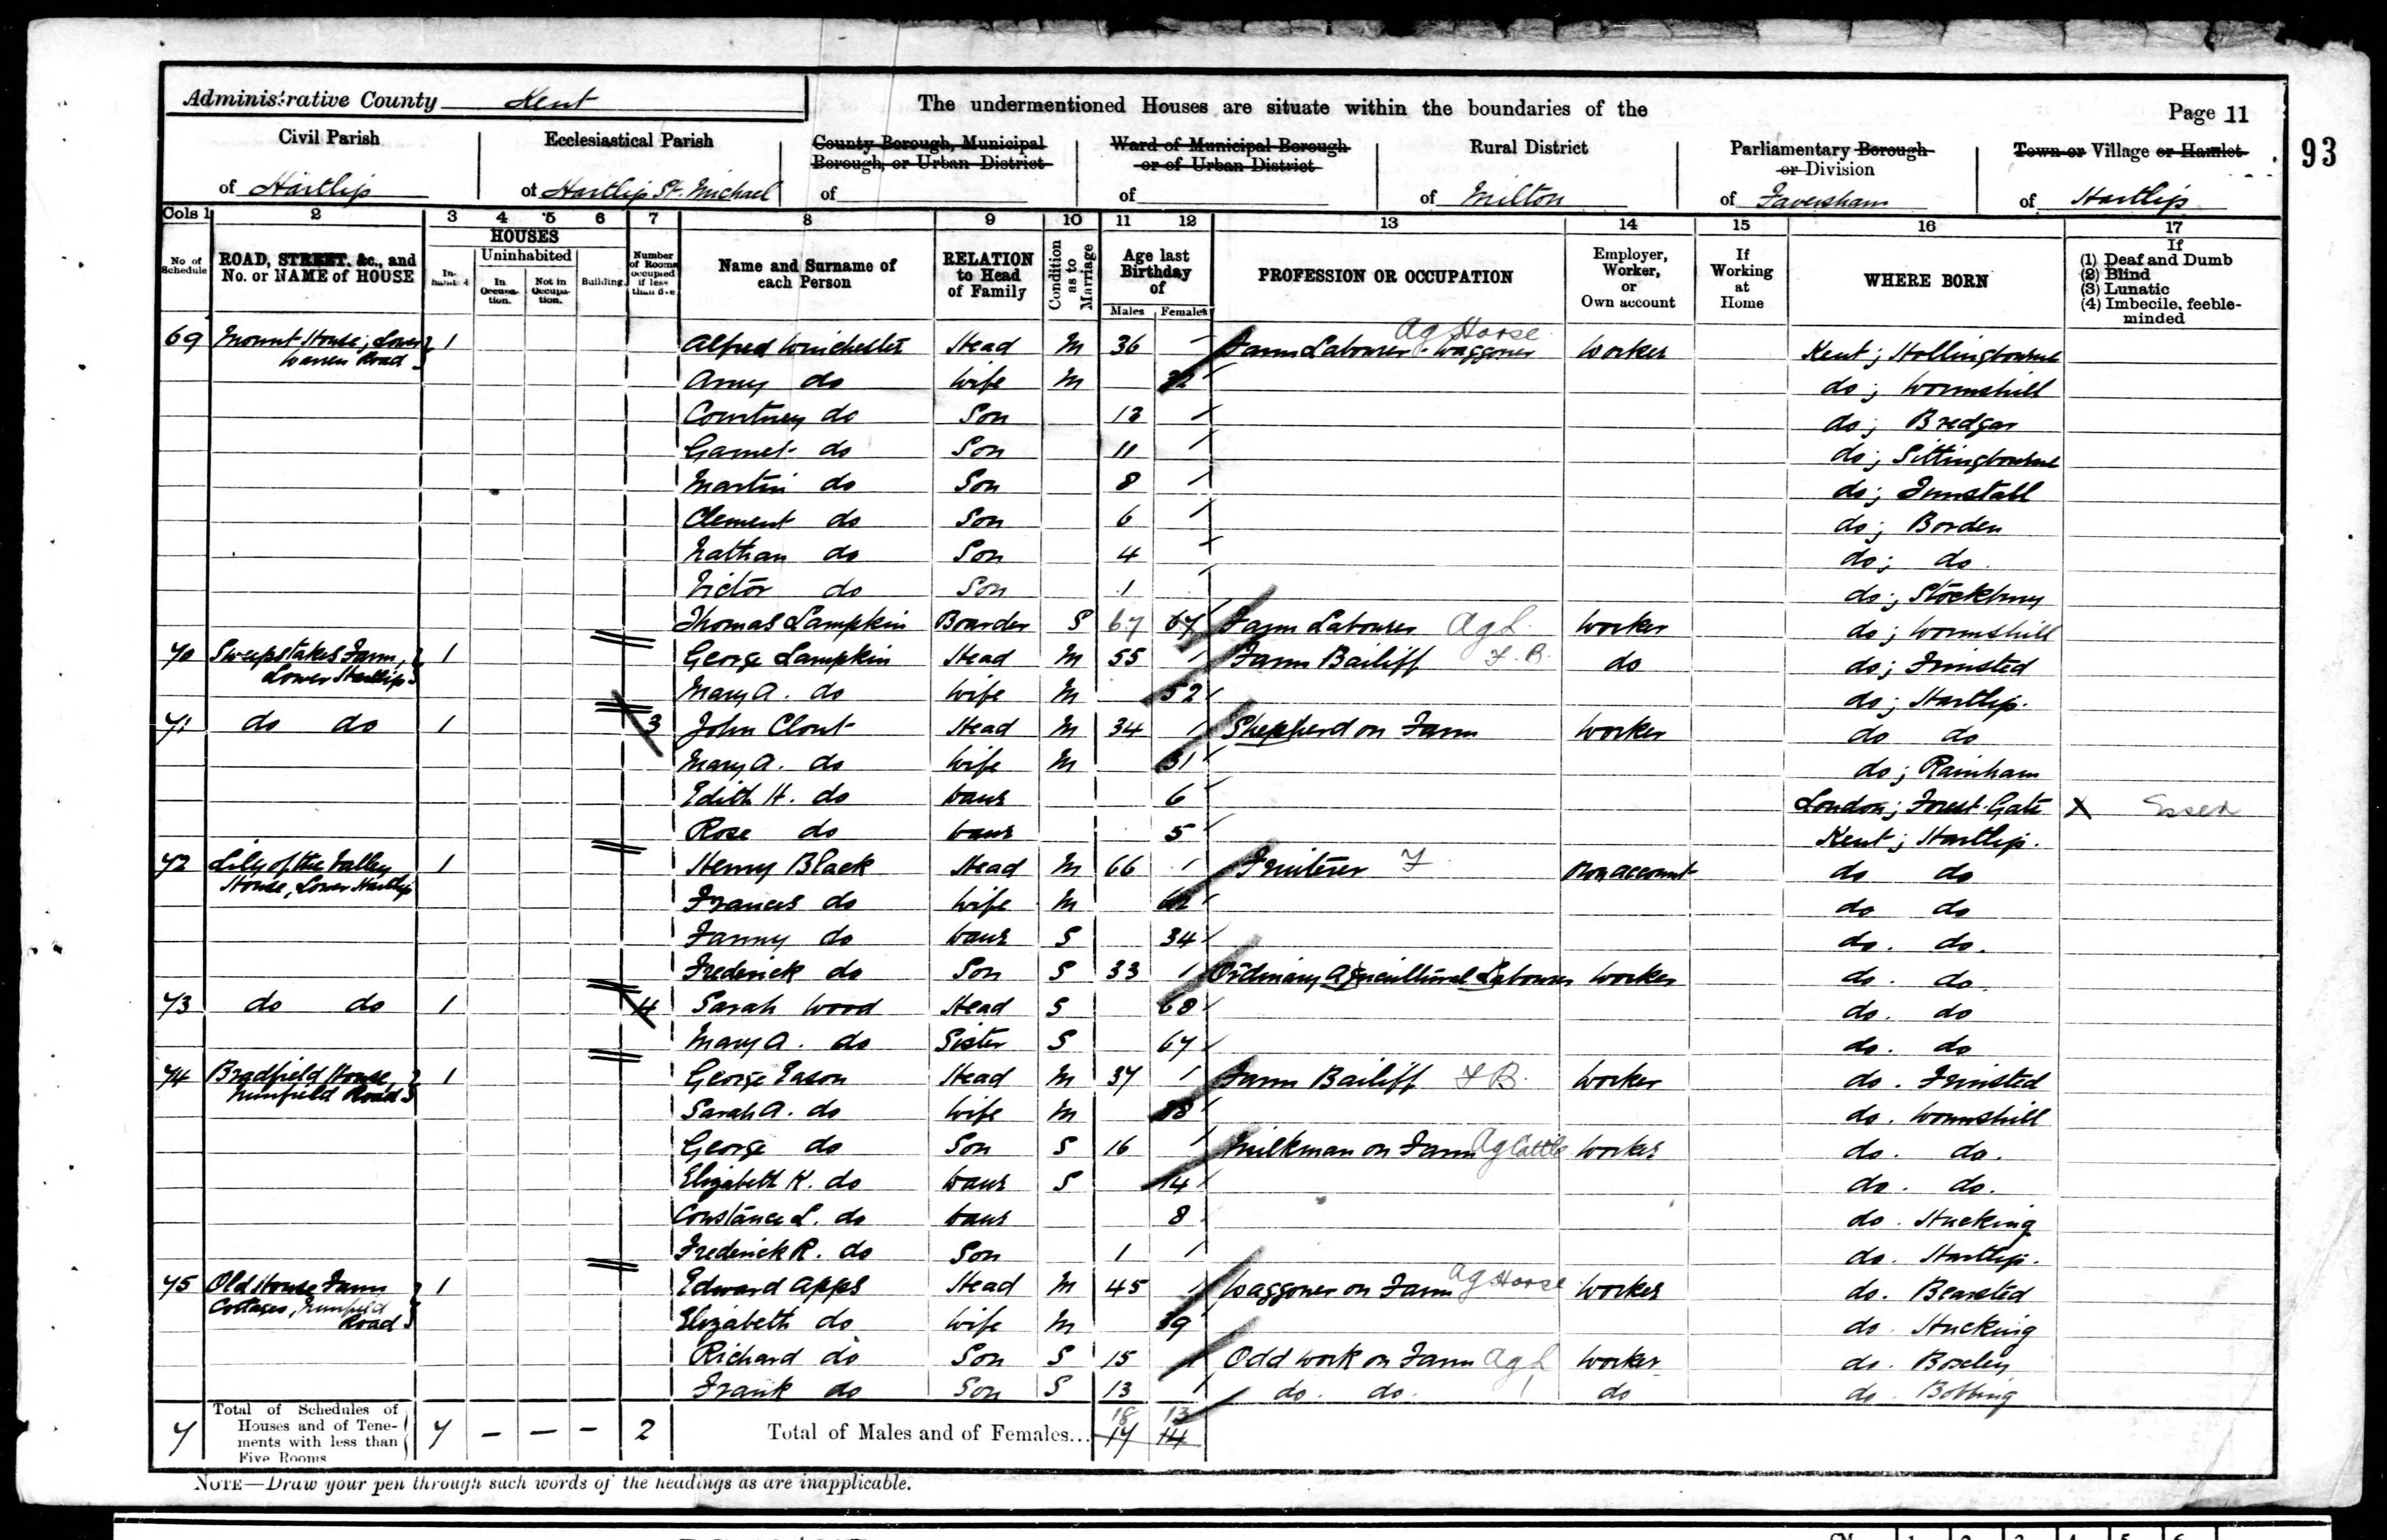 Administrative County Kent
The undermentioned Houses are situate within the boundaries of the
Page 11
93
Civil Parish of Hartlip
Ecclesiastical Parish of Hartlip St. Michael
County Borough, Municipal Borough, or Urban District of
Ward of Municipal Borough or of Urban District of
Rural District of Milton
Parliamentary Borough or Division of Faversham
Town or Village or Hamlet of Hartlip
Cols 1 2 3 4 5 6 7 8 9 10 11 12 13 14 15 16 17
No of Schedule
ROAD, STREET, &c., and No. or NAME of HOUSE
HOUSES
Inhabited
Uninhabited
In Occupation.
Not in Occupation.
Building
Number of Rooms occupied if less than five
Name and Surname of each Person
RELATION to Head of Family
Condition as to Marriage
Age last Birthday of
Males Females
PROFESSION OR OCCUPATION
Employer, Worker, or Own account
If Working at Home
WHERE BORN
If
(1) Deaf and Dumb
(2) Blind
(3) Lunatic
(4) Imbecile, feeble-minded
69 Mount House, Lower Warren Road 1 Alfred Winchester Head M 36 Farm Labourer - Waggoner Ag Horse Worker Kent; Hollingbourne
Amy do Wife M 32 do; Wormshill
Courtney do Son 13 do; Bredgar
Garnet do Son 11 do; Sittingbourne
Martin do Son 8 do; Tunstall
Clement do Son 6 do; Borden
Nathan do Son 4 do; do
Victor do Son 1 do; Stockbury
Thomas Lampkin Boarder S 67 67 Farm Labourer Ag L Worker do; Wormshill
70 Sweepstakes Farm, Lower Hartlip 1 George Lampkin Head M 55 Farm Bailiff F.B. do do; Frinsted
Mary A. do Wife M 52 do; Hartlip.
71 do do 1 3 John Clout Head M 34 Shepherd on Farm Worker do do
Mary A. do Wife M 31 do; Rainham
Edith H. do Daur 6 London; Forest Gate X Essex
Rose do Daur 5 Kent; Hartlip.
72 Lily of the Valley House, Lower Hartlip 1 Henry Black Head M 66 Fruiterer F Own account do do
Frances do Wife M do do
Fanny do Daur S 34 do. do.
Frederick do Son S 33 Ordinary Agricultural Labourer Worker do. do.
73 do do 1 4 Sarah Wood Head S 68 do. do
Mary A. do Sister S 67 do. do
74 Bradfield House, Munfield Road 1 George Eason Head M 37 Farm Bailiff F B. Worker do. Frinsted
Sarah A. do Wife M 38 do. Wormshill
George do Son S 16 Milkman on Farm Ag Cattle Worker do. do.
Elizabeth K. do Daur S 14 do. do.
Constance L. do Daur 8 do. Hucking
Frederick R. do Son 1 do. Hartlip.
75 Old House Farm Cottages, Munfield Road 1 Edward Apps Head M 45 Waggoner on Farm Ag Horse Worker do. Bearsted
Elizabeth do Wife M 39 do. Hucking
Richard do Son S 15 Odd work on Farm Ag L Worker do. Boxley
Frank do Son S 13 do. do. do do. Bobbing
7 Total of Schedules of Houses and of Tenements with less than Five Rooms 7 – – – 2 Total of Males and of Females... 18 13
17 14
NOTE—Draw your pen through such words of the headings as are inapplicable.